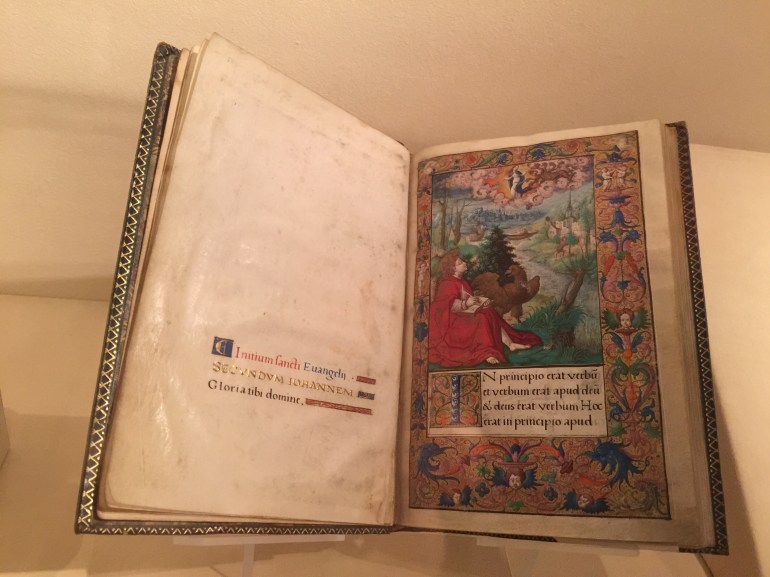 Initium sancti Evangelii.
SECVNDVM IOHANNEM
Gloria tibi domine,
IN principio erat verbū
et verbum erat apud deū
& deus erat verbum Hoc
erat in principio apud